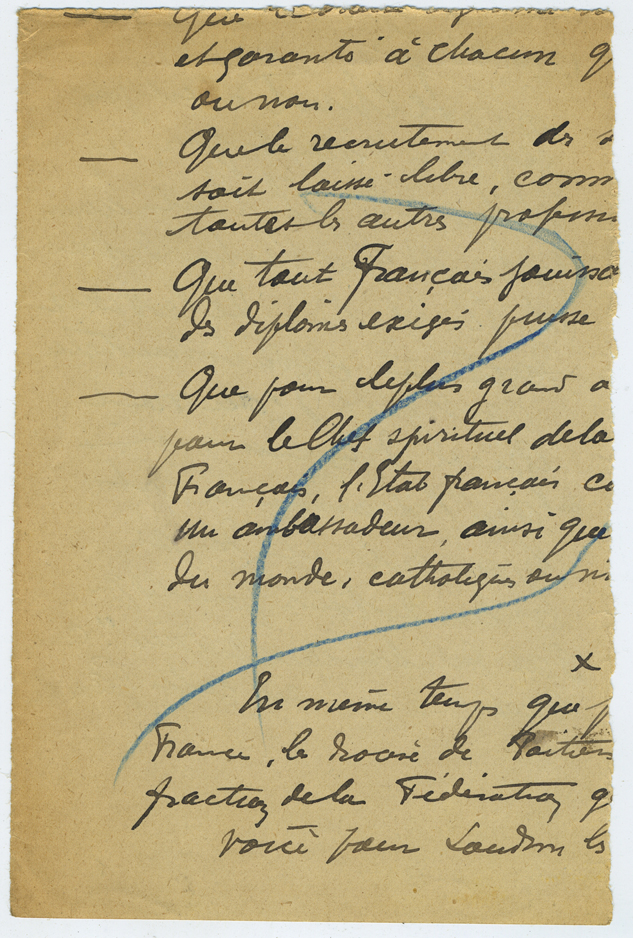 Que
et garanti à chacun q
ou non.
Que le recrutement des s
soit laissé libre, comm
toutes les autres profession
Que tout Français jouissa
des diplômes exigés puisse
Que pour le plus grand a
pour le Chef spirituel de la
Français, l'Etat français co
un ambassadeur, ainsi que
du monde, catholiques ou n
x
En même temps que p
France, le diocèse de Poitiers
fraction de la Fédération q
voici pour Loudun les